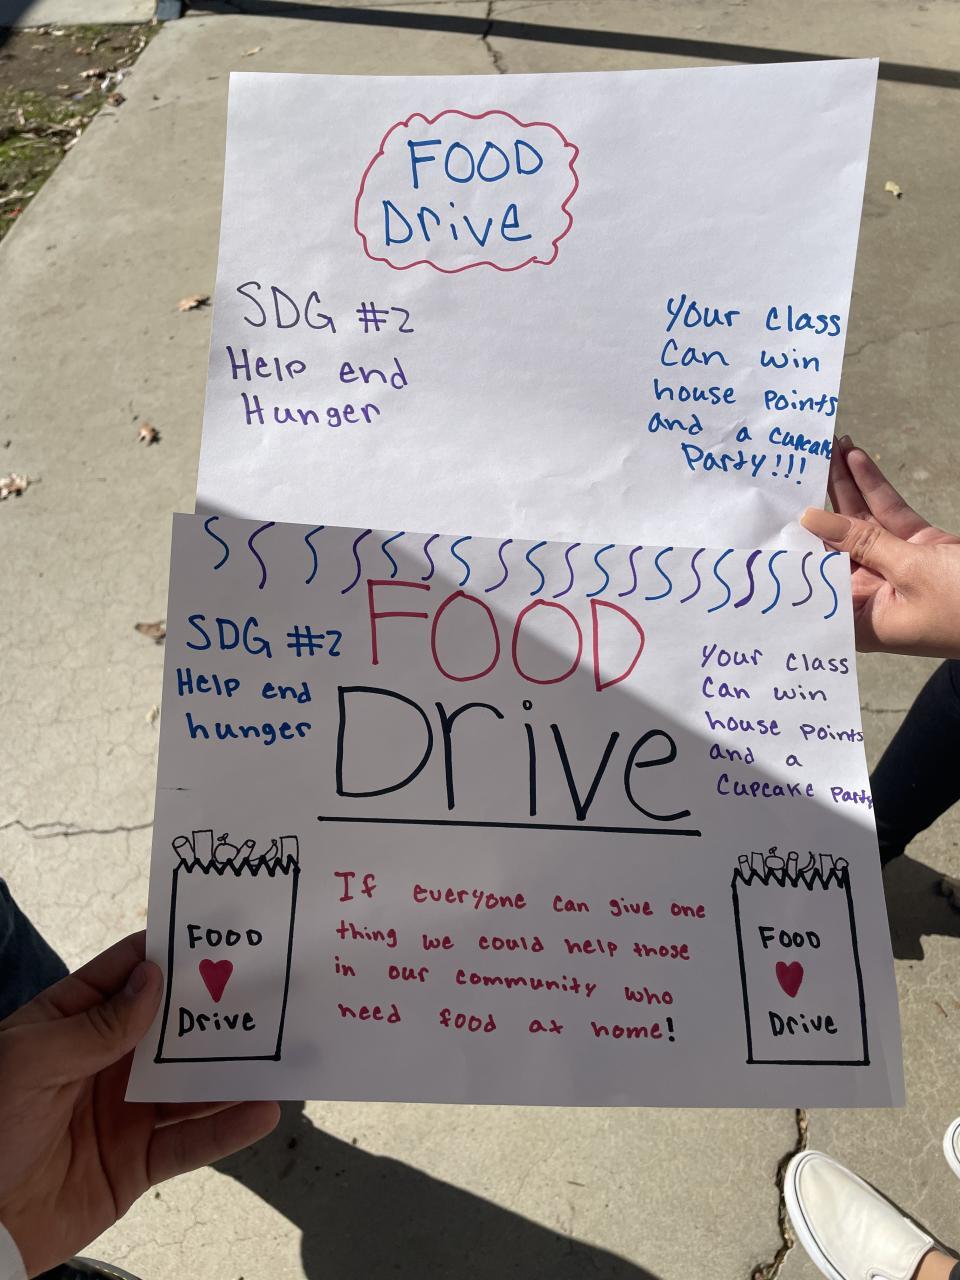 FOOD
Drive
SDG #2
Help end
Hunger
Your class
Can win
house points
and a cupcake
Party!!!
FOOD
Drive
SDG #2
Help end
hunger
Your class
Can win
house points
and a
Cupcake Party
If everyone can give one
thing we could help those
in our community who
need food at home!
FOOD
Drive
FOOD
Drive